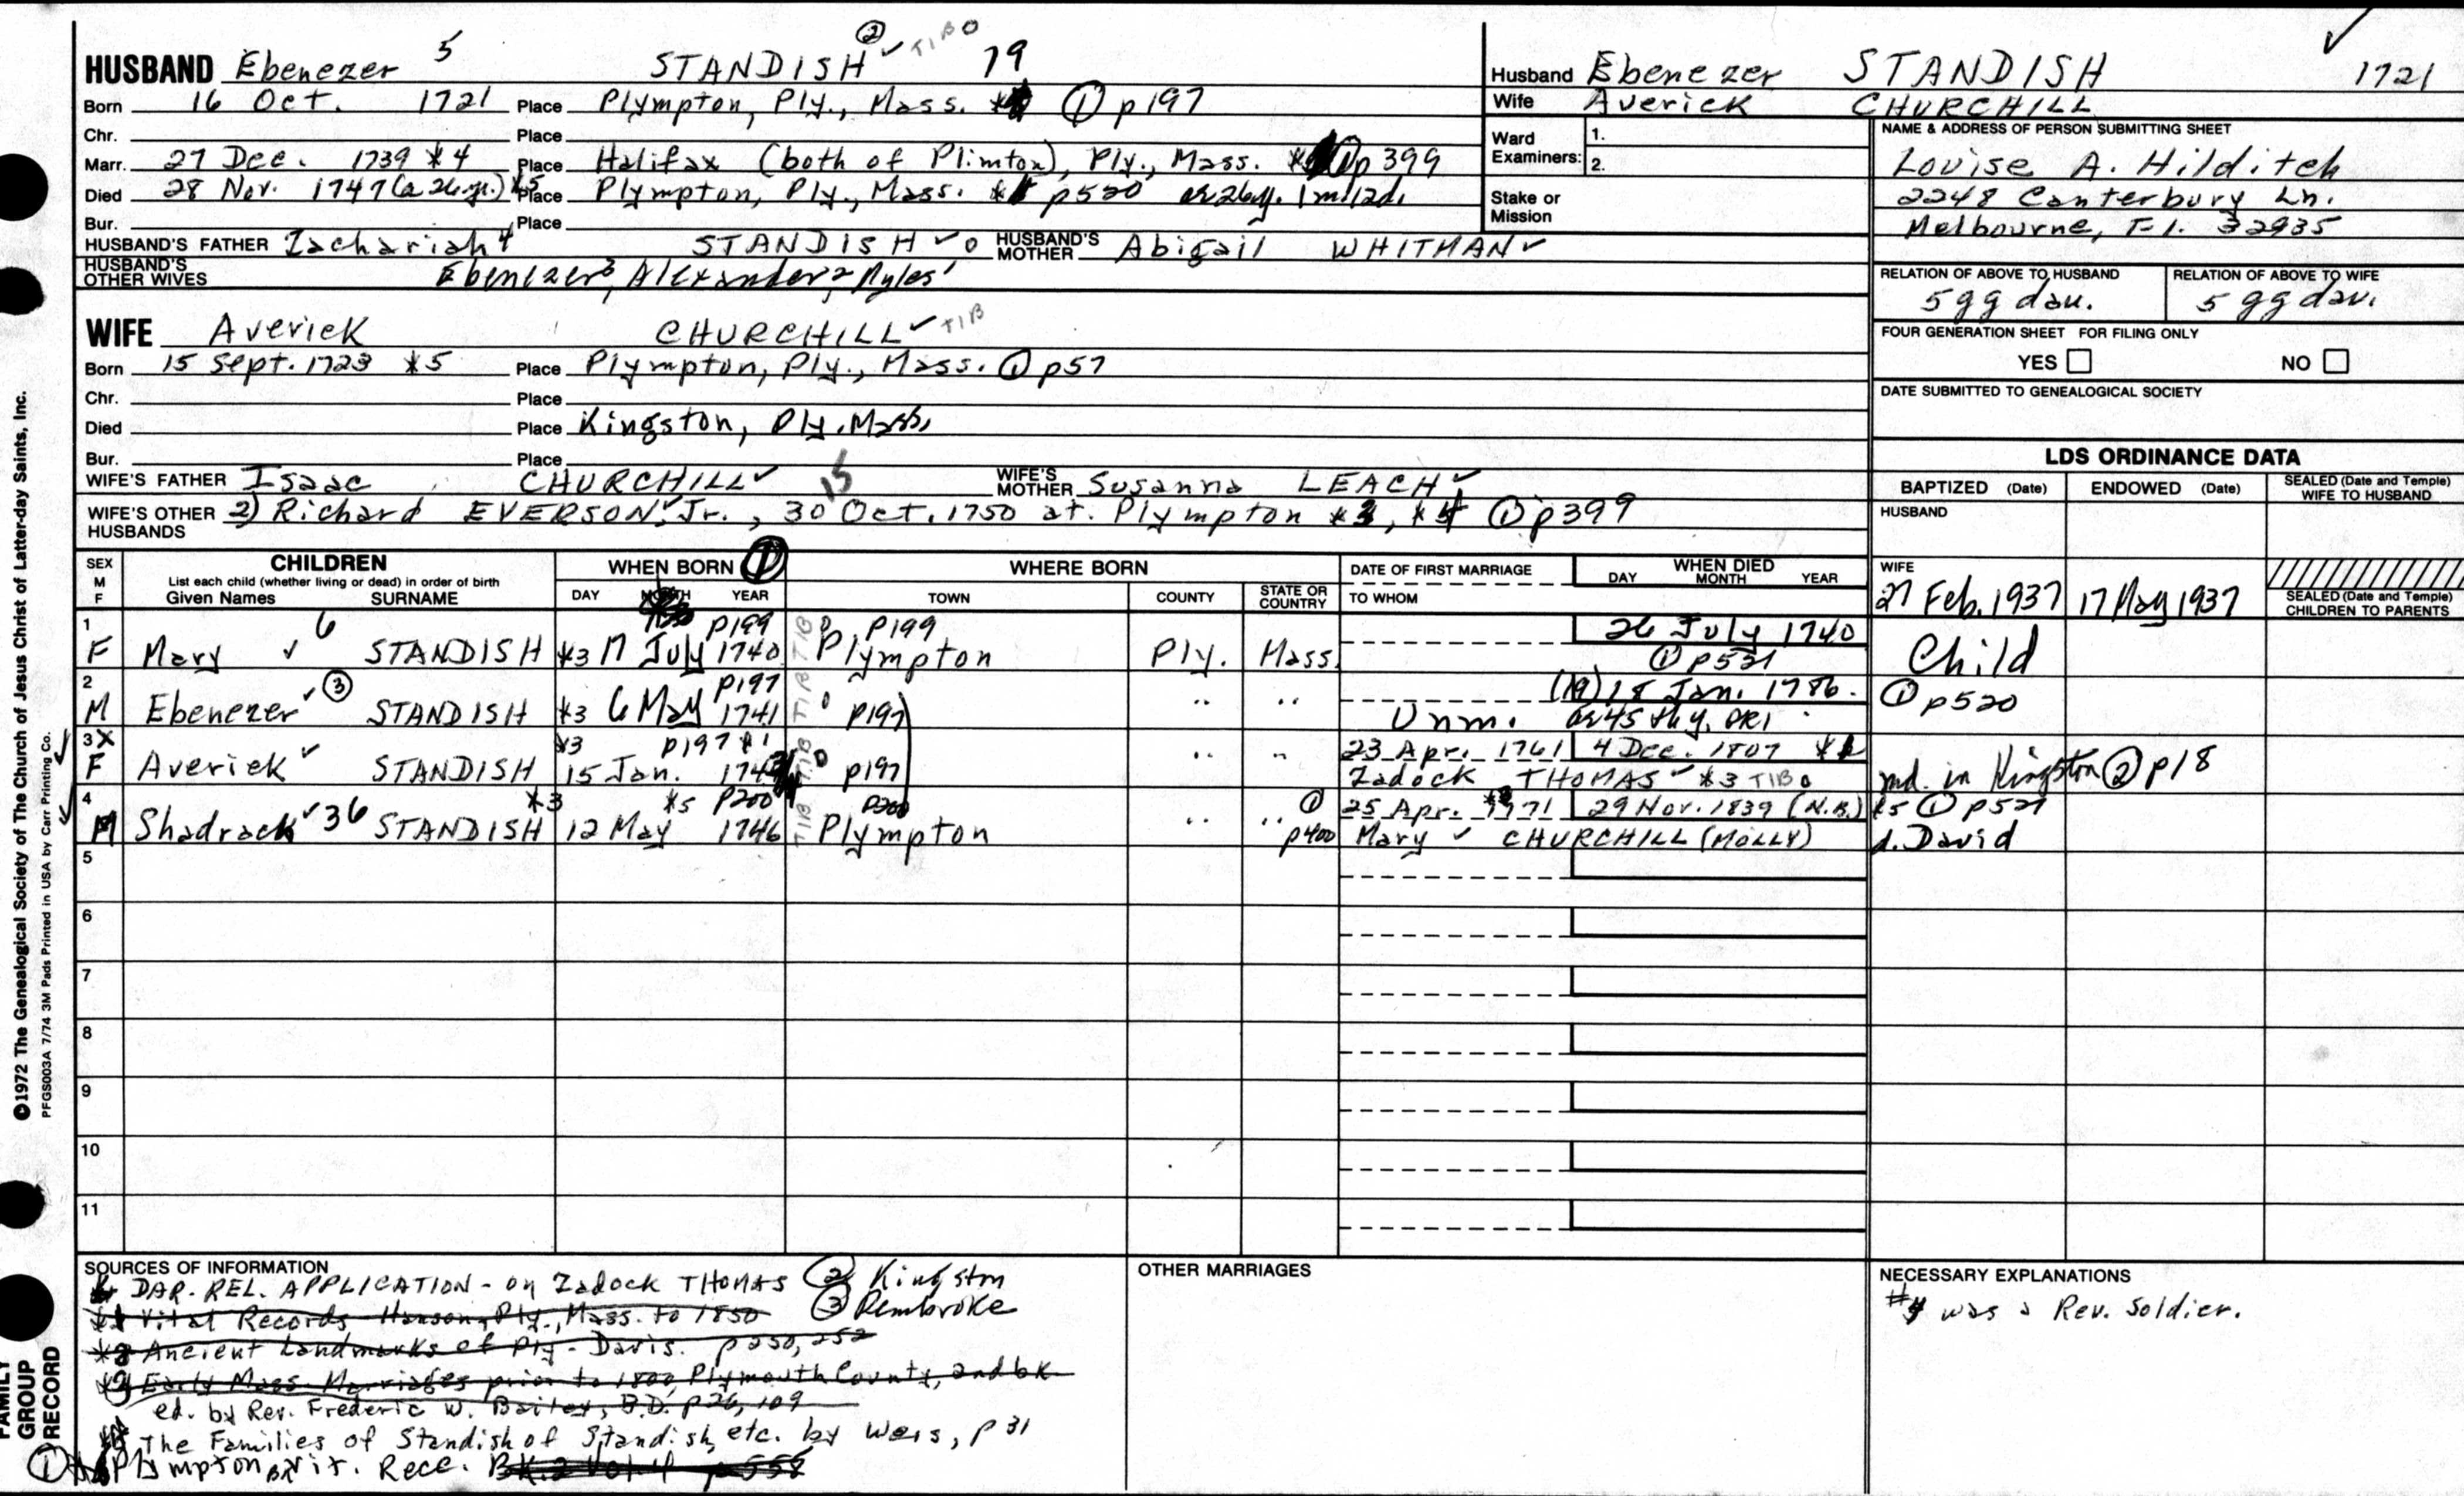 HUSBAND Ebenezer 5 STANDISH ② ✓ TIB O 19
Born 16 Oct. 1721 Place Plympton, Ply., Mass. ① p197
Chr. Place
Marr. 27 Dec. 1739 *4 Place Halifax (both of Plimton), Ply., Mass. p399
Died 28 Nov. 1747 (a 26 yr.) *5 Place Plympton, Ply., Mass. p520 ae 26y. 1m 12d.
Bur. Place
HUSBAND'S FATHER Zachariah 4 STANDISH ✓ O HUSBAND'S MOTHER Abigail WHITMAN ✓
HUSBAND'S OTHER WIVES Ebenezer3, Alexander2, Myles1
WIFE Averick CHURCHILL ✓ TIB
Born 15 Sept. 1723 *5 Place Plympton, Ply., Mass. ① p57
Chr. Place
Died Place Kingston, Ply. Mass.
Bur. Place
WIFE'S FATHER Isaac CHURCHILL ✓ 15 WIFE'S MOTHER Susanna LEACH ✓
WIFE'S OTHER HUSBANDS 2) Richard EVERSON, Jr., 30 Oct. 1750 at Plympton ① p399
Husband Ebenezer STANDISH 1721 ✓
Wife Averick CHURCHILL
Ward Examiners: 1.
2.
Stake or Mission
NAME & ADDRESS OF PERSON SUBMITTING SHEET
Louise A. Hilditch
2248 Canterbury Ln.
Melbourne, Fl. 32935
RELATION OF ABOVE TO HUSBAND RELATION OF ABOVE TO WIFE
5 gg dau. 5 gg dau.
FOUR GENERATION SHEET FOR FILING ONLY
YES NO
DATE SUBMITTED TO GENEALOGICAL SOCIETY
LDS ORDINANCE DATA
BAPTIZED (Date) ENDOWED (Date) SEALED (Date and Temple) WIFE TO HUSBAND
HUSBAND
WIFE
27 Feb. 1937 17 May 1937 SEALED (Date and Temple) CHILDREN TO PARENTS
SEX M F CHILDREN WHEN BORN ① WHERE BORN DATE OF FIRST MARRIAGE WHEN DIED
List each child (whether living or dead) in order of birth
Given Names SURNAME DAY MONTH YEAR TOWN COUNTY STATE OR COUNTRY TO WHOM DAY MONTH YEAR
1 6 p199 p199 26 July 1740
F Mary ✓ STANDISH *3 17 July 1740 TIB Plympton Ply. Mass. ① p521 Child
2 ③ p197 (19) 18 Jan. 1786. ① p520
M Ebenezer ✓ STANDISH *3 6 May 1741 TIB O p197 " " Unm.
3 X *3 p197 *1 23 Apr. 1761 4 Dec. 1807
F Averick ✓ STANDISH 15 Jan. TIB O p197 " " Zadock THOMAS ✓ *3 TIB O md. in Kingston ② p18
4 *3 *5 p200 p200 ① 25 Apr. 1771 29 Nov. 1839 (N.B.) *5 ① p521
M Shadrack ✓ 36 STANDISH 12 May 1746 TIB Plympton " " p400 Mary ✓ CHURCHILL (MOLLY) d. David
5
6
7
8
9
10
11
SOURCES OF INFORMATION
DAR. REL. APPLICATION - on Zadock THOMAS ② Kingston
Vital Records Hanson, Ply., Mass. to 1850 ③ Pembroke
Ancient Landmarks of Ply - Davis. p250, 252
Early Mass. Marriages prior to 1800, Plymouth County, 2nd bk.
ed. by Rev. Frederic W. Bailey, B.D. p26, 109
The Families of Standish of Standish, etc. by Weis, p 31
① Plympton Vit. Rece. Bk. 2 Vol. 4 p558
OTHER MARRIAGES
NECESSARY EXPLANATIONS
#4 was a Rev. Soldier.
©1972 The Genealogical Society of The Church of Jesus Christ of Latter-day Saints, Inc.
PFGS003A 7/74 3M Pads Printed in USA by Carr Printing Co.
FAMILY GROUP RECORD